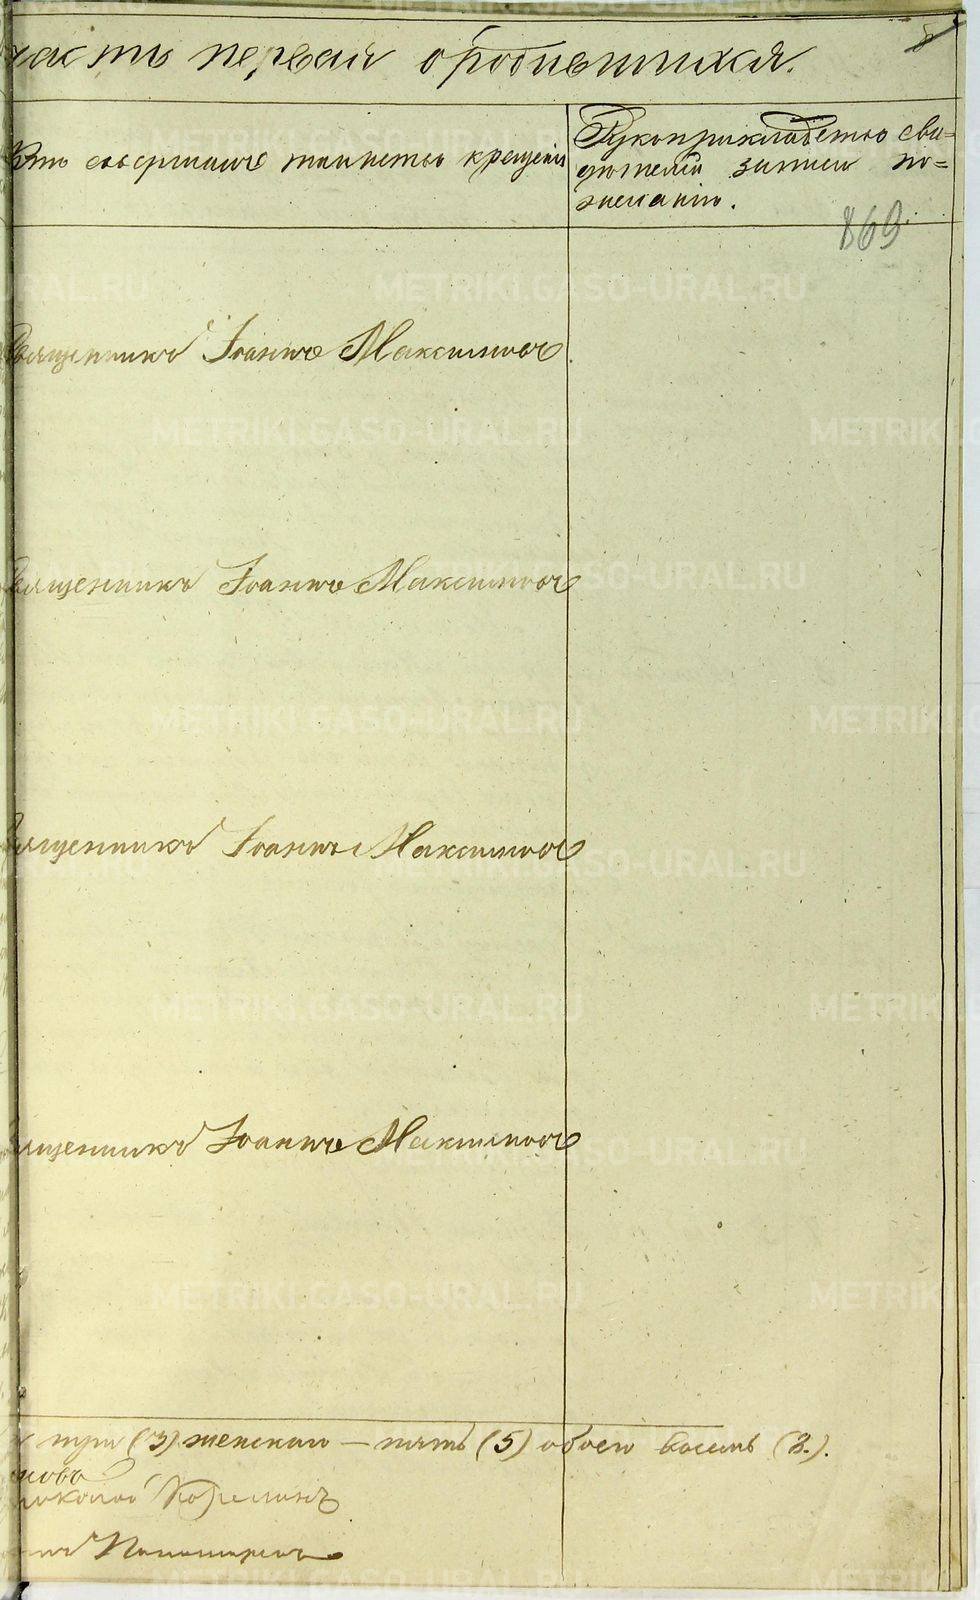 часть первая о родившихся.
8
Кто совершалъ таинство крещенія
Рукоприкладство сви-
дѣтелей записи по-
желанію.
869.
Священникъ Іоаннъ Максимовъ.
Священникъ Іоаннъ Максимовъ
Священникъ Іоаннъ Максимовъ
Священникъ Іоаннъ Максимовъ
три (3) женскаго — пять (5) обоего восемь (8.).
Николай
METRIKI.GASO-URAL.RU